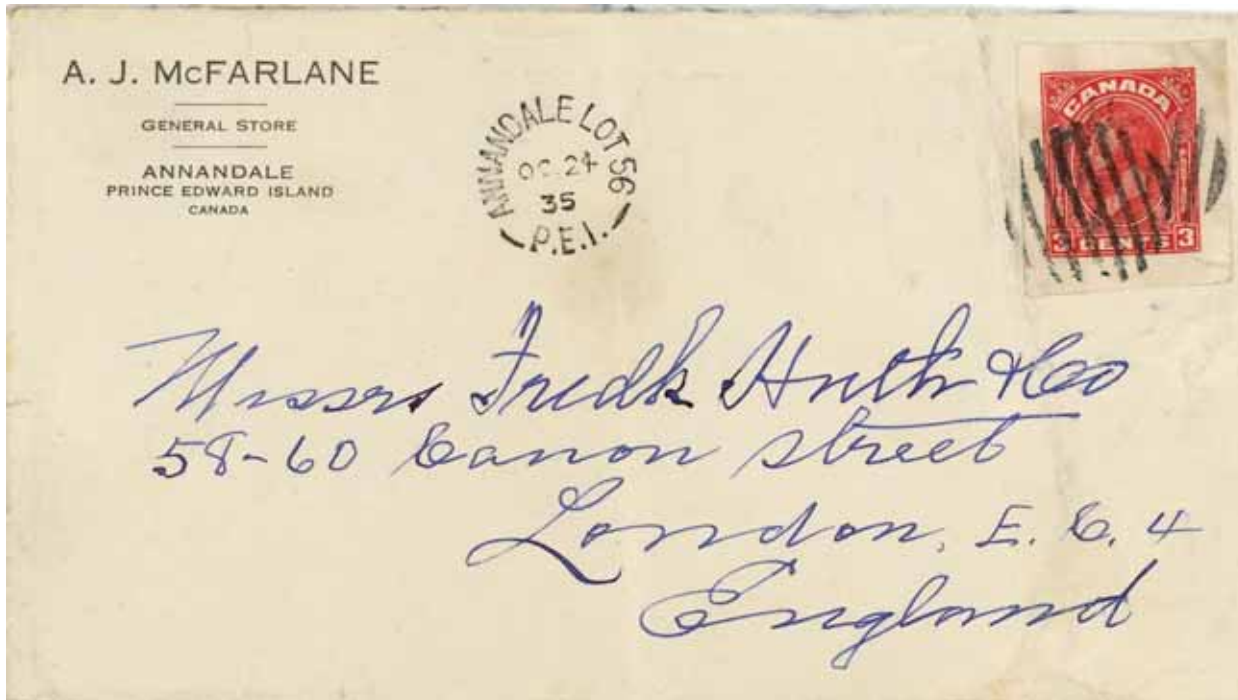 A. J. McFARLANE
GENERAL STORE
ANNANDALE
PRINCE EDWARD ISLAND
CANADA
ANNANDALE LOT 56
OC 24
35
P.E.I.
CANADA
3 CENTS 3
Messrs Fredk Huth & Co
58-60 Canon street
London, E.C. 4
England